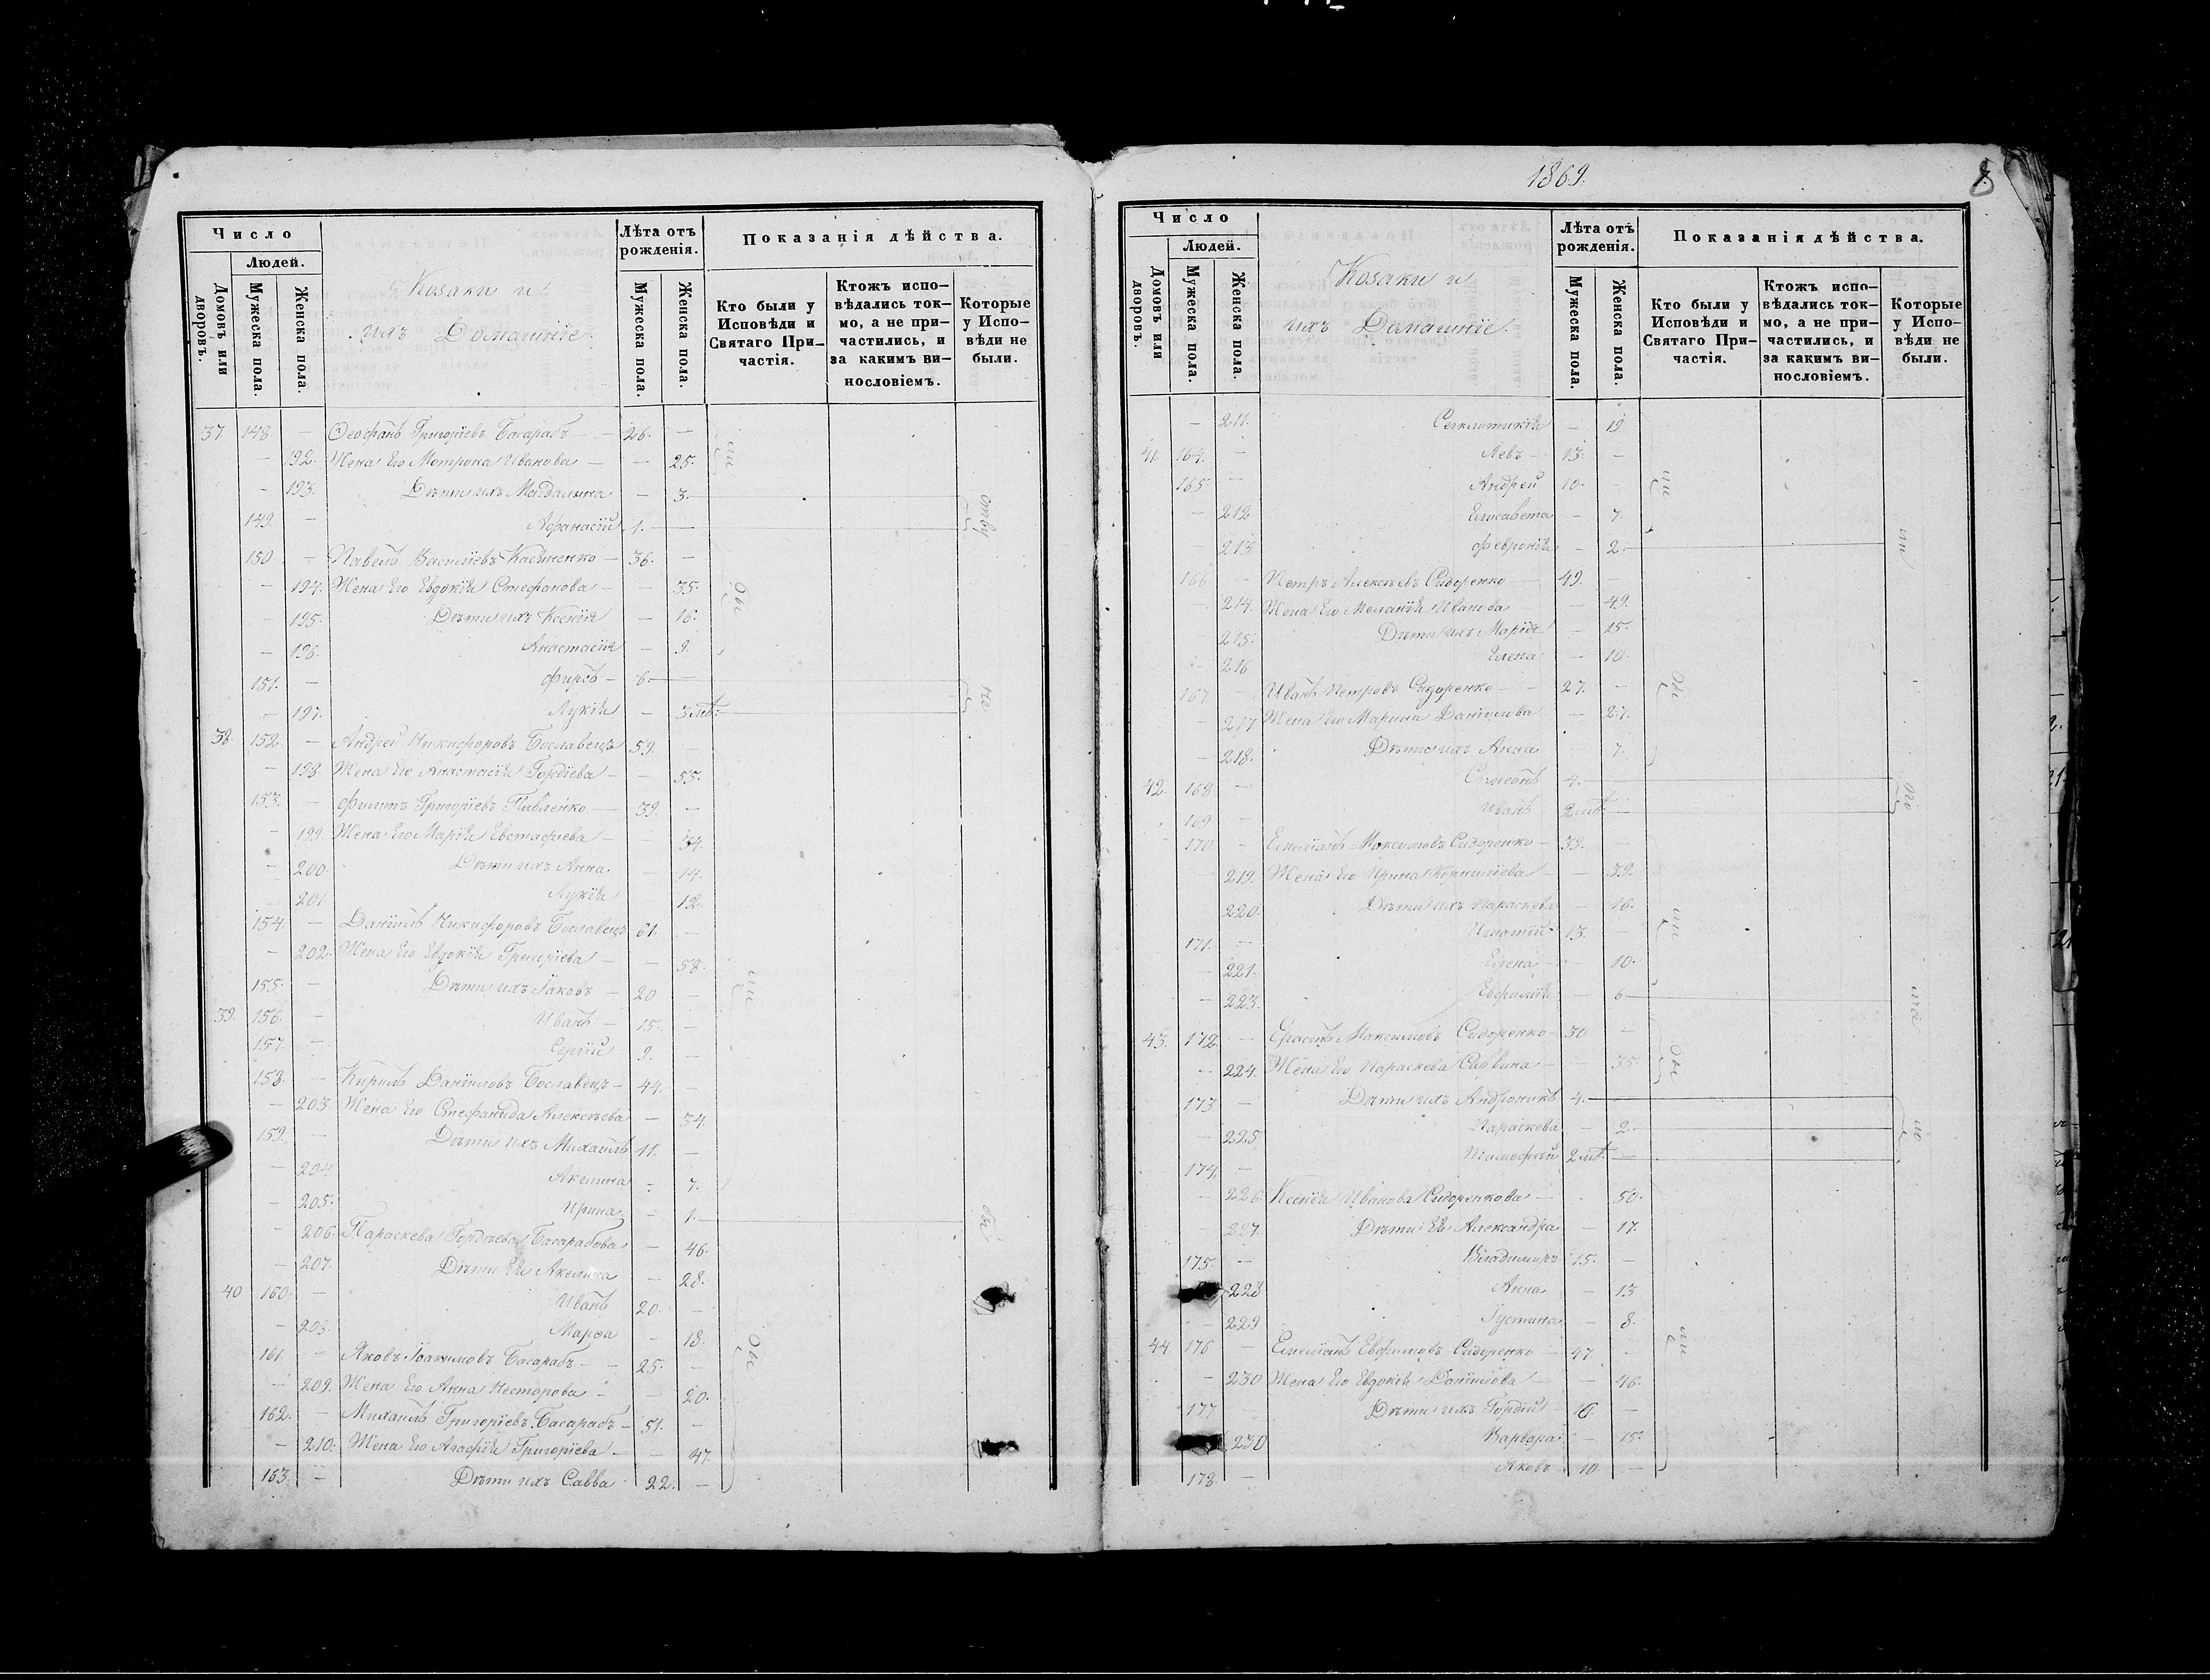 Число
Людей.
Домовъ или дворовъ.
Мужеска пола.
Женска пола.
Козаки и
ихъ Домашніе.
Лѣта отъ рожденія.
Мужеска пола.
Женска пола.
Показанія дѣйства.
Кто были у Исповѣди и Святаго Причастія.
Ктожъ исповѣдались токмо, а не причастились, и за какимъ винословіемъ.
Которые у Исповѣди не были.
37 148 — Ѳеофанъ Григоріевъ Басарабъ — 26. —
— 192. Жена Его Мотрона Иванова — — 25.
— 193. Дѣти ихъ Магдалина — 3.
149. — Афанасій 1. —
150 — Павелъ Василіевъ — 36. —
— 194. Жена Его Евдокія Стефанова — — 35.
— 195. Дѣти ихъ Ксенія — 16.
— 196. Анастасія — 9.
151. — Фирсъ — 6. —
— 197. Лукія — 3 мѣ:
38. 152. — Андрей Никифоровъ Бославецъ 59. —
— 198. Жена Его Анастасія Гордіева — — 55.
153. — Филипъ Григоріевъ Павленко — 39. —
— 199. Жена Его Марія Евстафіева — 34.
— 200. Дѣти ихъ Анна — 14.
— 201 Лукія 12.
154. — Даніилъ Никифоровъ Бославецъ 61. —
— 202. Жена Его Евдокія Григоріева — — 58.
155. — Дѣти ихъ Іаковъ — 20 —
39. 156. — Иванъ — 15. —
157. — Сергій 9. —
158. — Кирилъ Даніиловъ Бославецъ — 44. —
— 203 Жена Его Стефанида Алексѣева — 34.
159. — Дѣти ихъ Михаилъ 11. —
— 204. Акелина — 7.
— 205. Ирина — 1.
— 206. Параскева Гордѣева Басарабова — 46.
— 207. Дѣти Ея Акелина — 28.
40 160. — Иванъ 20. —
— 208. Марѳа — 18.
161. — Яковъ Іоакимовъ Басарабъ — 25. —
— 209. Жена Его Анна Несторова — — 20.
162. — Михаилъ Григоріевъ Басарабъ — 51. —
— 210. Жена Его Агафія Григоріева — — 47.
163. — Дѣти ихъ Савва 22. —
1869.
8
Число
Людей.
Домовъ или дворовъ.
Мужеска пола.
Женска пола.
Козаки и
ихъ Домашніе.
Лѣта отъ рожденія.
Мужеска пола.
Женска пола.
Показанія дѣйства.
Кто были у Исповѣди и Святаго Причастія.
Ктожъ исповѣдались токмо, а не причастились, и за какимъ винословіемъ.
Которые у Исповѣди не были.
— 211. — 19
41. 164. — Левъ — 13. —
165. — Андрей 10. —
— 212 Елисавета — 7.
213 Февронія — 2.
166 — Петръ Алексѣевъ Сидоренко — 49. —
— 214. Жена Его Меланія Иванова — 49.
215. Дѣти ихъ Марія — 15.
— 216 Елена — 10.
167 — Иванъ Петровъ Сидоренко — 27. —
— 217 Жена Его Марина Даніилова — 27.
— 218. Дѣти ихъ Анна — 7.
42. 168 — Симеонъ 4. —
169 — Иванъ 2 мѣ: —
170 — Емеліанъ Максимовъ Сидоренко — 39.
219. Жена Его Ирина Корниліева — — 39.
220. Дѣти ихъ Параскева — 16.
171. — Игнатій 13. —
— 221. Елена — — 10.
— 223. Евфимія — 6
43. 172. — Ерастъ Максимовъ Сидоренко 30. —
— 224. Жена Его Параскева Саввина — 35.
173. — Дѣти ихъ Андроникъ 4.
— 225 Параскева — 2.
174. — Тимофей 2 мѣ. —
— 226. Ксенія Иванова Сидоренкова — — 50.
— 227. Дѣти Ея Александра — 17.
175. — Владимиръ 15. —
228 Анна — 13
— 229 Іустина — 8.
44 176 — Емеліанъ Евфимовъ Сидоренко — 47. —
— 230 Жена Его Евдокія Даніилова — — 46.
177 — Дѣти ихъ Гордій — 16. —
230 Варвара — 15.
178. — Яковъ — 10 —